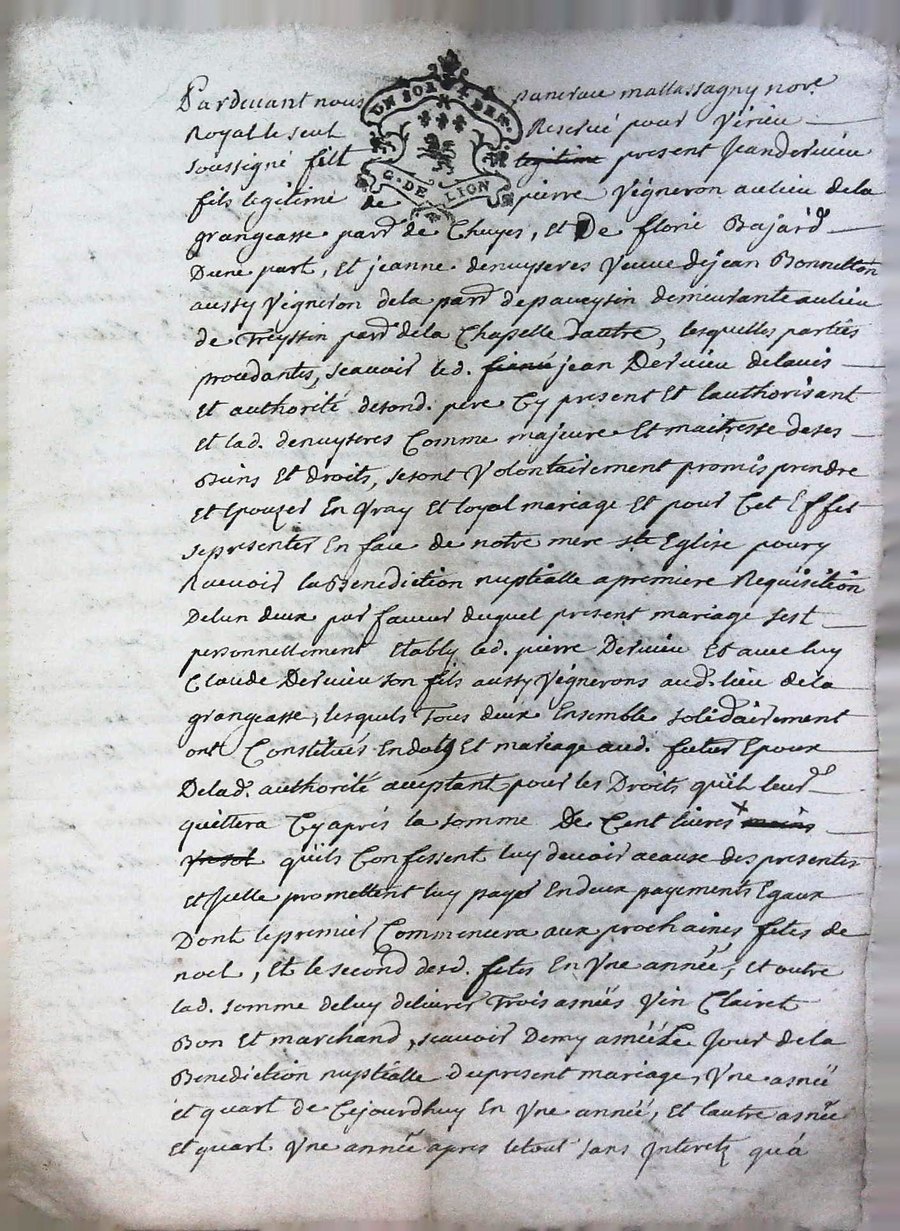 Pardevant nous pancrace mallassagny nore.
Royal le seul Reservé pour Virieu
soussigné fut legitime present Jean Dervieu
fils legitime de pierre Vigneron au lieu de la
grangeasse parr. de Chuyes, et De florie Bajard
Dune part, et jeanne denuyseres Veuve de jean Bonnetton
aussy Vigneron de la parr. de paveysin demeurante au lieu
de Treyssin parr. de la Chapelle dautre, lesquelles parties
procedantes, scavoir led. jean Dervieu de lavis
et authorité de sond. pere Cy present et lauthorisant
et lad. denuyseres Comme majeure et maitresse de ses
Biens et droits, se sont Volontairement promis prendre
et Epouzer En Vray et loyal mariage et pour Cet Effet
se presenter En face de notre mere ste Eglise pour y
Recevoir la Benediction nuptialle a premiere Requisition
De lun deux par faveur duquel present mariage sest
personnellement Etably led. pierre Dervieu et avec luy
Claude Dervieu son fils aussy Vignerons aud. lieu de la
grangeasse, lesquels Tous deux Ensemble solidairement
ont Constitués En dot et mariage aud. futur Epoux
De lad. authorité acceptant pour les Droits quil leur
quittera Cy après la somme De Cent livres moins
quils Confessent luy devoir acause des presentes
et Jcelle promettent luy payer En deux payements Egaux
Dont le premier Commencera aux prochaines fetes de
noel, Et le second desd. fetes En Vne année, et outre
lad. somme de luy delivrer Trois asnées Vin Clairet
Bon et marchand, scavoir Demy asnée le Jour de la
Benediction nuptialle du present mariage, Vne asnée
et quart de Cejourdhuy En Vne année, et lautre asnée
et quart Vne année apres le tout sans Jnterets qu'á
UN SOL
G. DE LION